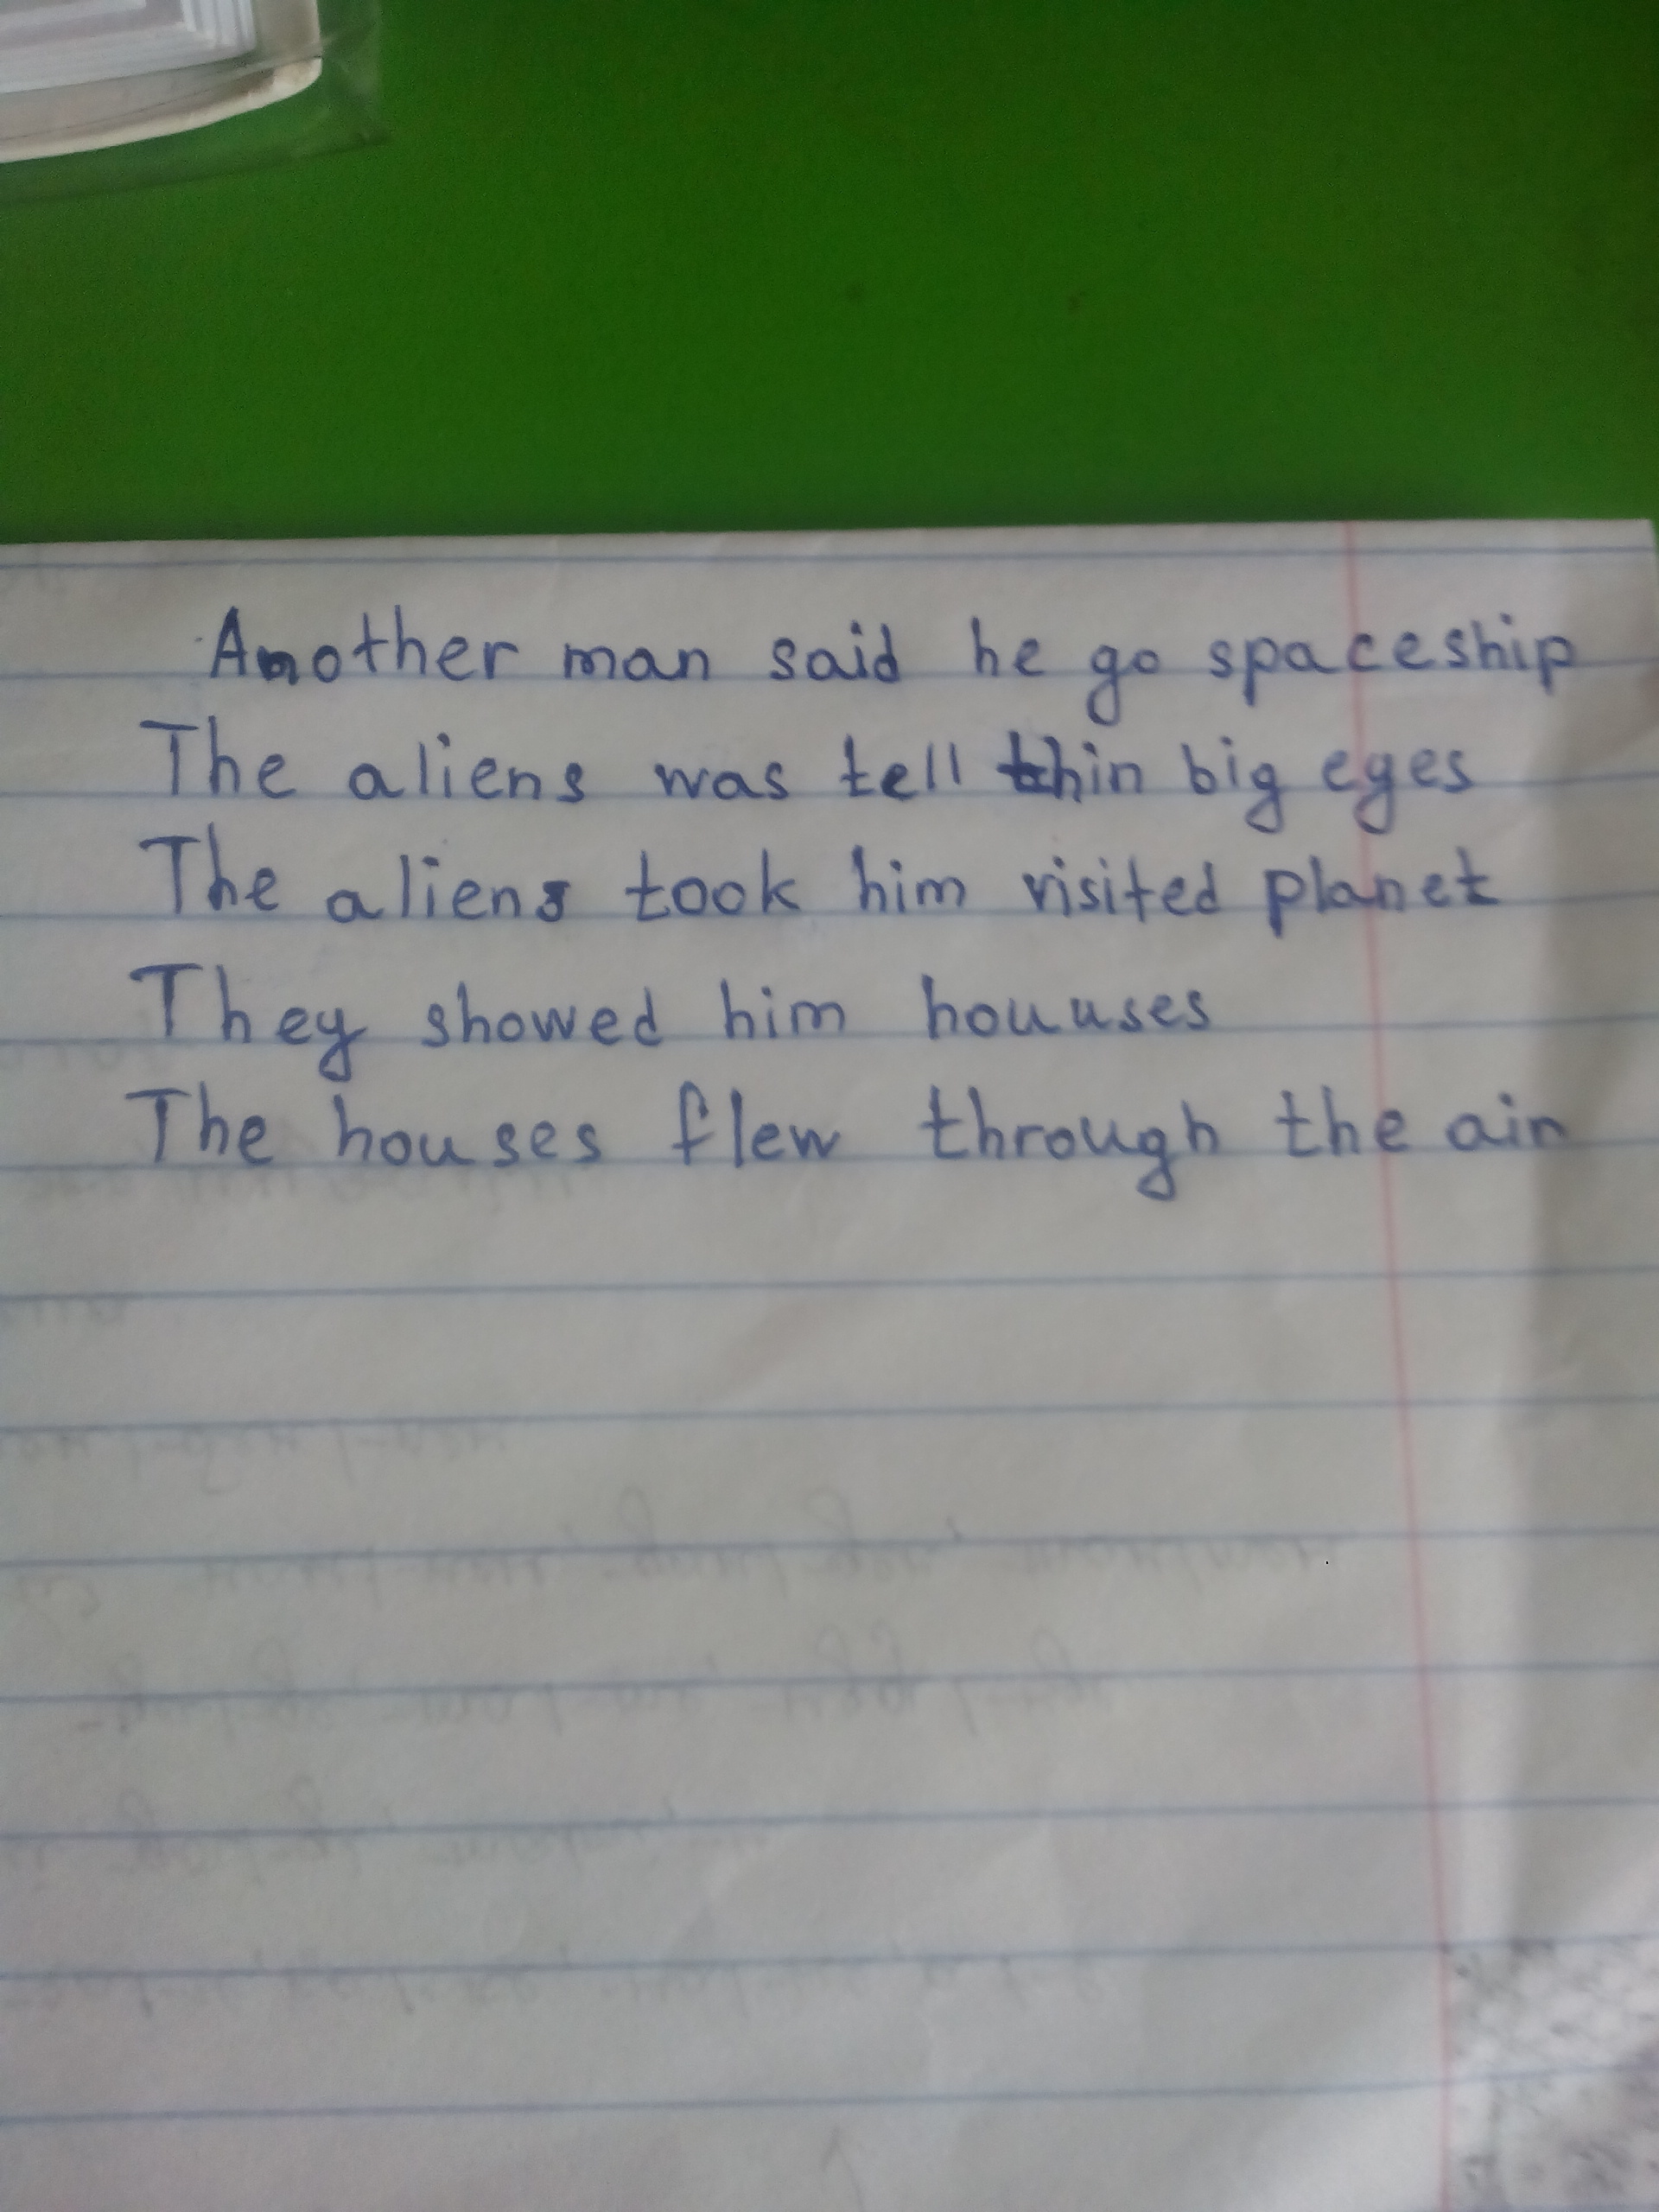 Another man said he go spaceship
The aliens was tell thin big eyes
The aliens took him visited planet
They showed him houuses
The houses flew through the air